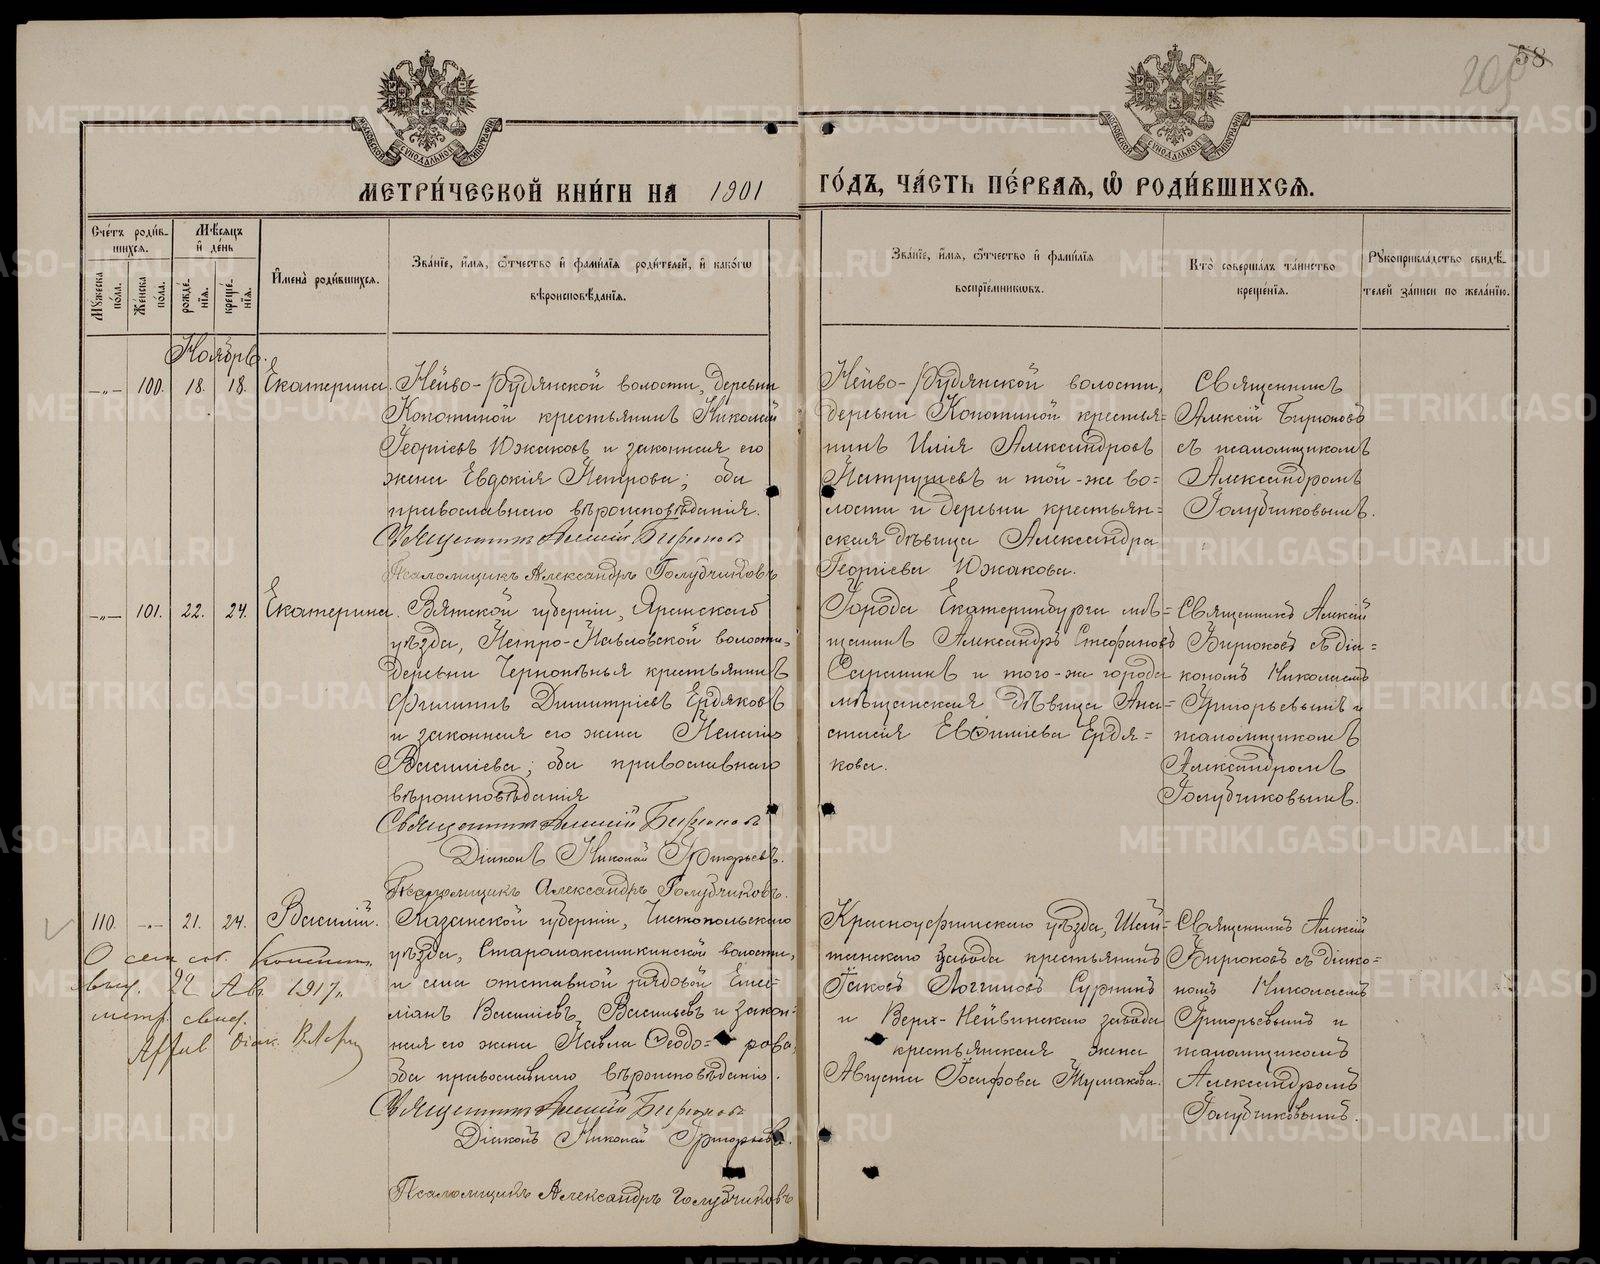 58
205
МЕТРИ́ЧЕСКОЙ КНИ́ГИ НА 1901 ГО́ДЪ, ЧА́СТЬ ПЕ́РВАѦ, Ѡ҆ РОДИ́ВШИХСѦ.
Сче́тъ роди́в-
шихся.
Мѣ́сяцъ
и҆ де́нь
Му́жеска
по́ла.
Же́нска
по́ла.
рожде́-
нїѧ.
креще́-
нїѧ.
И҆мена̀ роди́вшихсѧ.
Зва́нїе, и҆́мѧ, ѻ҆́тчество и҆ фами́лїѧ роди́телей, и҆ како́гѡ
вѣроисповѣ́данїѧ.
Зва́нїе, и҆́мѧ, ѻ҆́тчество и҆ фами́лїѧ
воспрїе́мникѡвъ.
Кто̀ соверша́лъ та́инство
креще́нїѧ.
Рꙋкоприкла́дство свидѣ́-
телей за́писи по жела́нїю.
Ноябрь.
—„— 100. 18. 18. Екатерина.
Нейво-Рудянской волости, деревни
Копотиной крестьянинъ Николай
Георгіевъ Южаковъ и законная его
жена Евдокія Петрова; оба
православнаго вѣроисповѣданія.
Священникъ Алексій Бирюковъ
Псаломщикъ Александръ Голубчиковъ
Нейво-Рудянской волости,
деревни Копотиной крестья=
нинъ Илія Александровъ
Патрушевъ и той-же во=
лости и деревни крестьян=
ская дѣвица Александра
Георгіева Южакова.
Священникъ
Алексій Бирюковъ
съ псаломщикомъ
Александромъ
Голубчиковымъ.
—„— 101. 22. 24. Екатерина.
Вятской губерніи, Яранскаго
уѣзда, Петро-Павловской волости,
деревни Чернопѣнья крестьянинъ
Филиппъ Димитріевъ Ердяковъ
и законная его жена Пелагія
Василіева; оба православнаго
вѣроисповѣданія
Священникъ Алексій Бирюковъ
Діаконъ Николай Григорьевъ.
Псаломщикъ Александръ Голубчиковъ.
Города Екатеринбурга мѣ=
щанинъ Александръ Стефановъ
Саранинъ и того-же города
мѣщанская дѣвица Ана=
стасія Евѳиміева Ердя=
кова.
Священникъ Алексій
Бирюковъ съ діа=
кономъ Николаемъ
Григорьевымъ и
псаломщикомъ
Александромъ
Голубчиковымъ.
110. —„— 21. 24. Василій.
О сем
выд. 22 Ав. 1917 г.
метр. свид.
Казанской губерніи, Чистопольскаго
уѣзда, Старомаксимкинской волости,
и села отставной рядовой Еме=
ліанъ Василіевъ Васильевъ и закон=
ная его жена Павла Ѳеодо= рова,
оба православнаго вѣроисповѣданія.
Священникъ Алексій Бирюковъ
Діаконъ Николай Григорьевъ.
Псаломщикъ Александръ Голубчиковъ
Красноуфимскаго уѣзда, Шай=
танскаго завода крестьянинъ
Іаковъ Логгиновъ Суринъ
и Верх-Нейвинскаго завода
крестьянская жена
Августа Іосифова Тумакова.
Священникъ Алексій
Бирюковъ съ діако=
номъ Николаемъ
Григорьевымъ и
псаломщикомъ
Александромъ
Голубчиковымъ.
METRIKI.GASO-URAL.RU